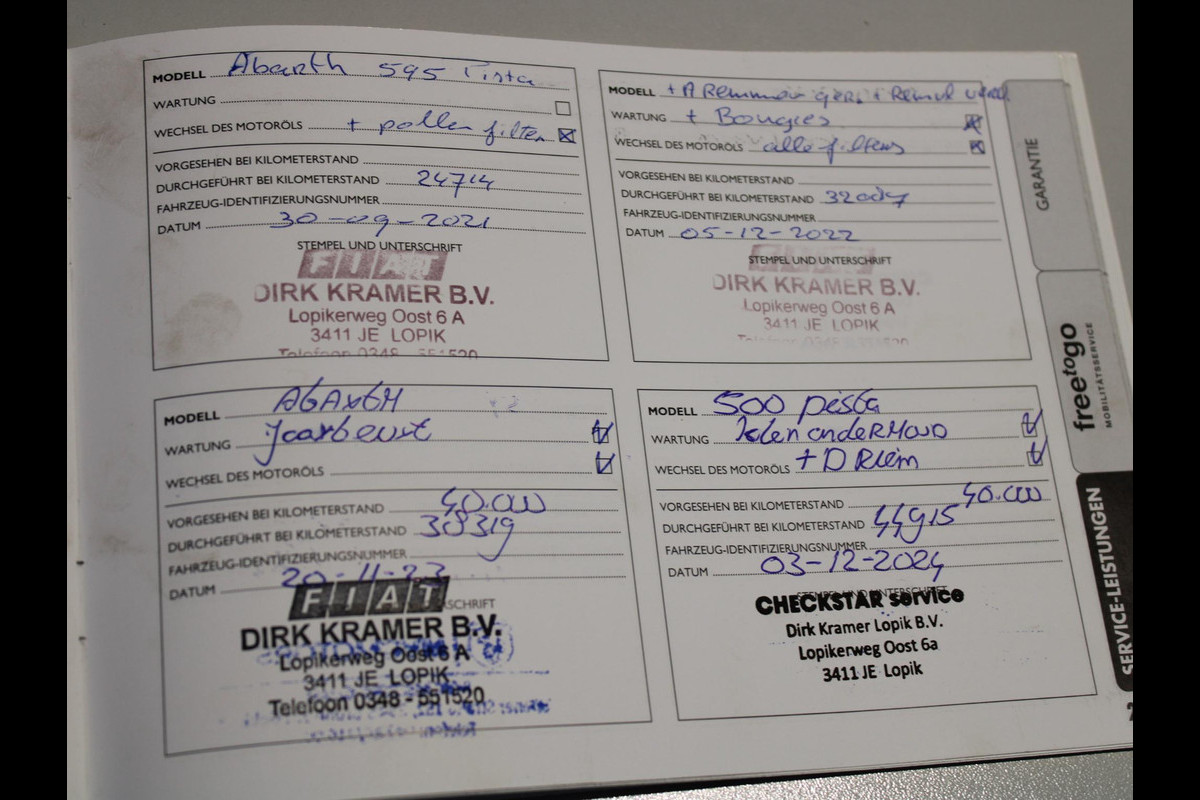 MODELL Abarth 595 Pista
WARTUNG
WECHSEL DES MOTORÖLS + pollen filter
VORGESEHEN BEI KILOMETERSTAND
DURCHGEFÜHRT BEI KILOMETERSTAND 24714
FAHRZEUG-IDENTIFIZIERUNGSNUMMER
DATUM 30-09-2021
STEMPEL UND UNTERSCHRIFT
FIAT
DIRK KRAMER B.V.
Lopikerweg Oost 6 A
3411 JE LOPIK
Telefoon 0348 - 551520
MODELL + A Remmen + Remvl
WARTUNG + Bougies
WECHSEL DES MOTORÖLS alle filters
VORGESEHEN BEI KILOMETERSTAND
DURCHGEFÜHRT BEI KILOMETERSTAND
FAHRZEUG-IDENTIFIZIERUNGSNUMMER
DATUM 05-12-2022
STEMPEL UND UNTERSCHRIFT
FIAT
DIRK KRAMER B.V.
Lopikerweg Oost 6 A
3411 JE LOPIK
MODELL AbaRtH
WARTUNG Jaarbeurt
WECHSEL DES MOTORÖLS
VORGESEHEN BEI KILOMETERSTAND 40.000
DURCHGEFÜHRT BEI KILOMETERSTAND 38319
FAHRZEUG-IDENTIFIZIERUNGSNUMMER
DATUM 20-11-23
SCHRIFT
FIAT
DIRK KRAMER B.V.
Lopikerweg Oost 6 A
3411 JE LOPIK
Telefoon 0348 - 551520
MODELL 500 pista
WARTUNG KlEin ondeRHOUD
WECHSEL DES MOTORÖLS + D Riem
VORGESEHEN BEI KILOMETERSTAND 40.000
DURCHGEFÜHRT BEI KILOMETERSTAND 44915
FAHRZEUG-IDENTIFIZIERUNGSNUMMER
DATUM 03-12-2024
STEMPEL UND UNTERSCHRIFT
CHECKSTAR service
Dirk Kramer Lopik B.V.
Lopikerweg Oost 6a
3411 JE Lopik
GARANTIE
freetogo
MOBILITÄTSSERVICE
SERVICE-LEISTUNGEN